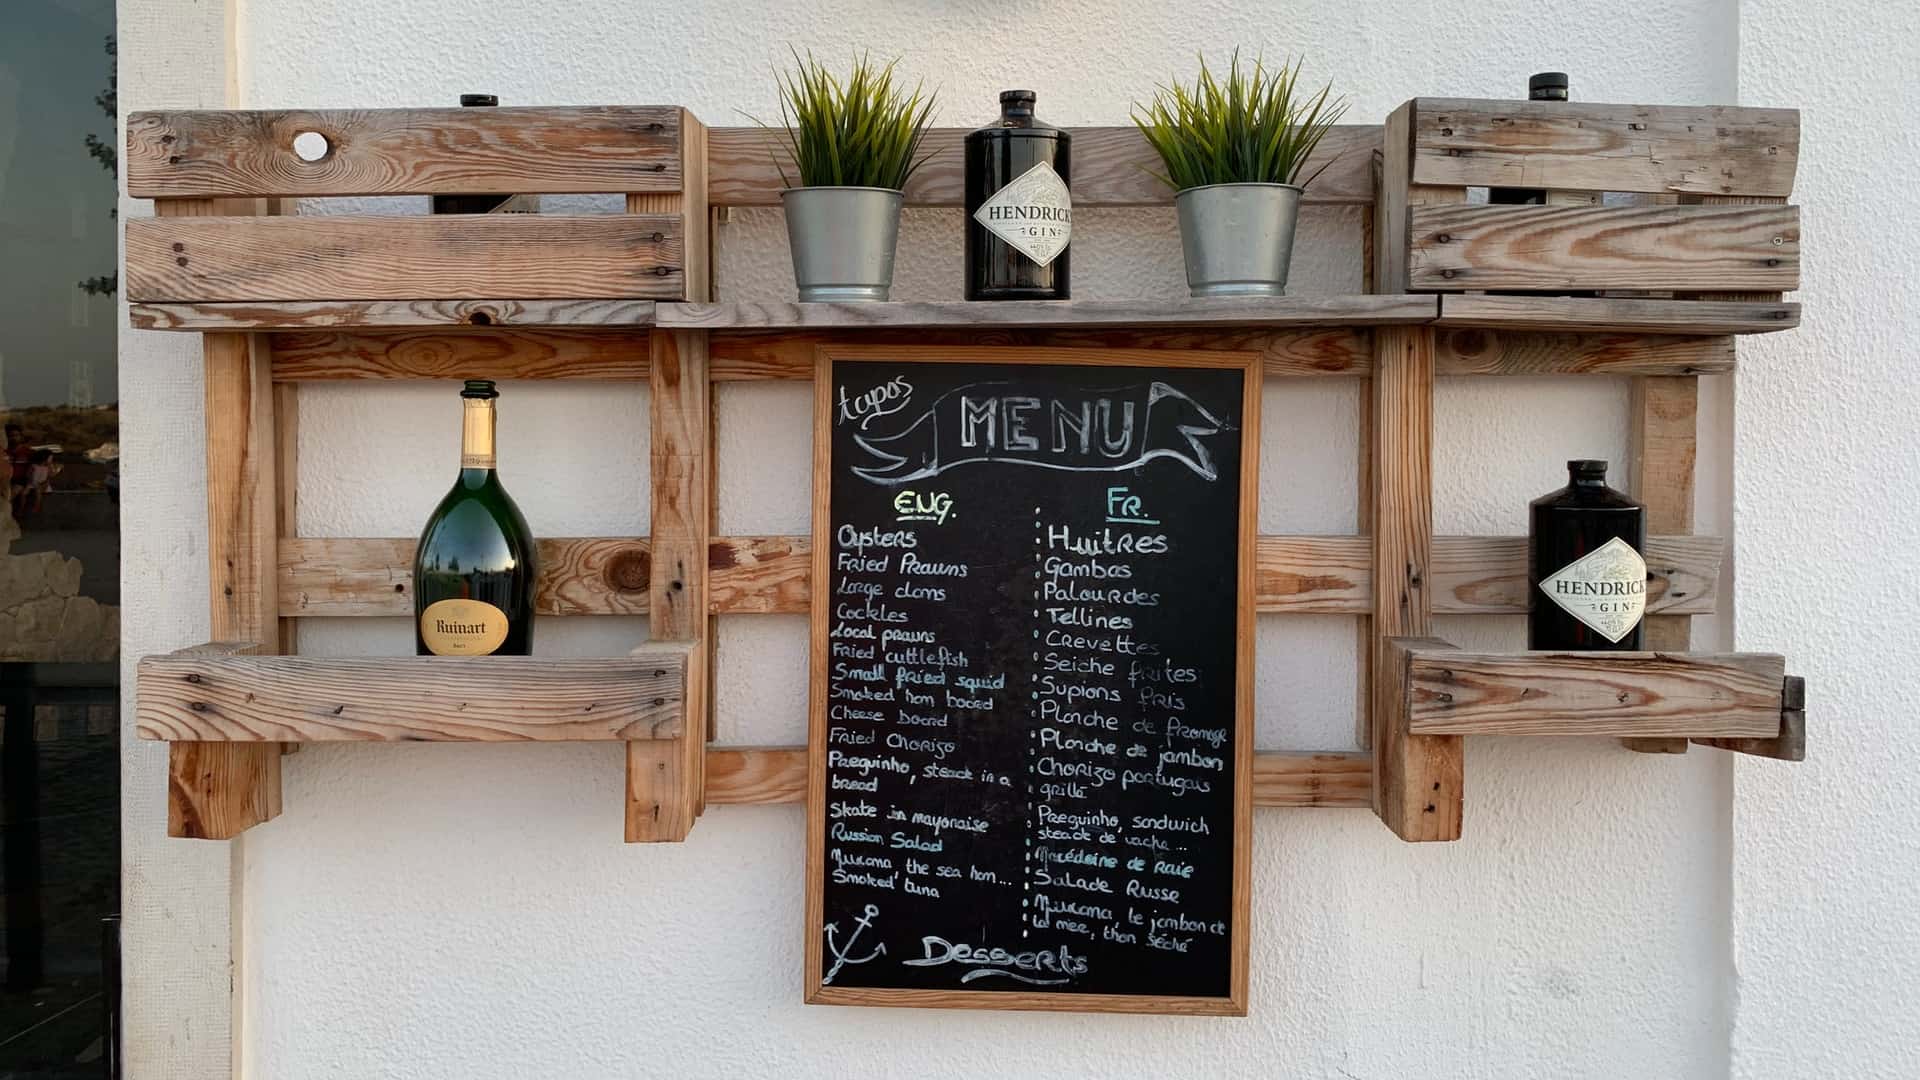 HENDRICK
GIN
tapas
MENU
ENG.
Oysters
Fried Prawns
Large clams
Cockles
Local prawns
Fried cuttlefish
Small fried squid
Smoked ham board
Cheese board
Fried Chorizo
Preguinho, steack in a
bread
Skate in mayonaise
Russian Salad
Muxama, the sea ham...
Smoked tuna
FR.
Huitres
Gambas
Palourdes
Tellines
Crevettes
Seiche frites
Supions fris
Planche de fromage
Planche de jambon
Chorizo portugais
grillé
Preguinho, sandwich
steack de vache...
Macédoine de raie
Salade Russe
Muxama, le jambon de
la mer, thon séché
Desserts
Ruinart
BRUT
HENDRICK
GIN